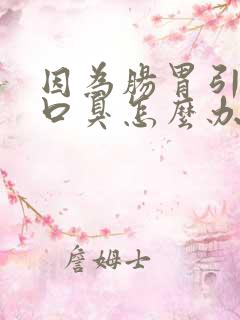 因為腸胃引
口臭怎麼办
詹姆士